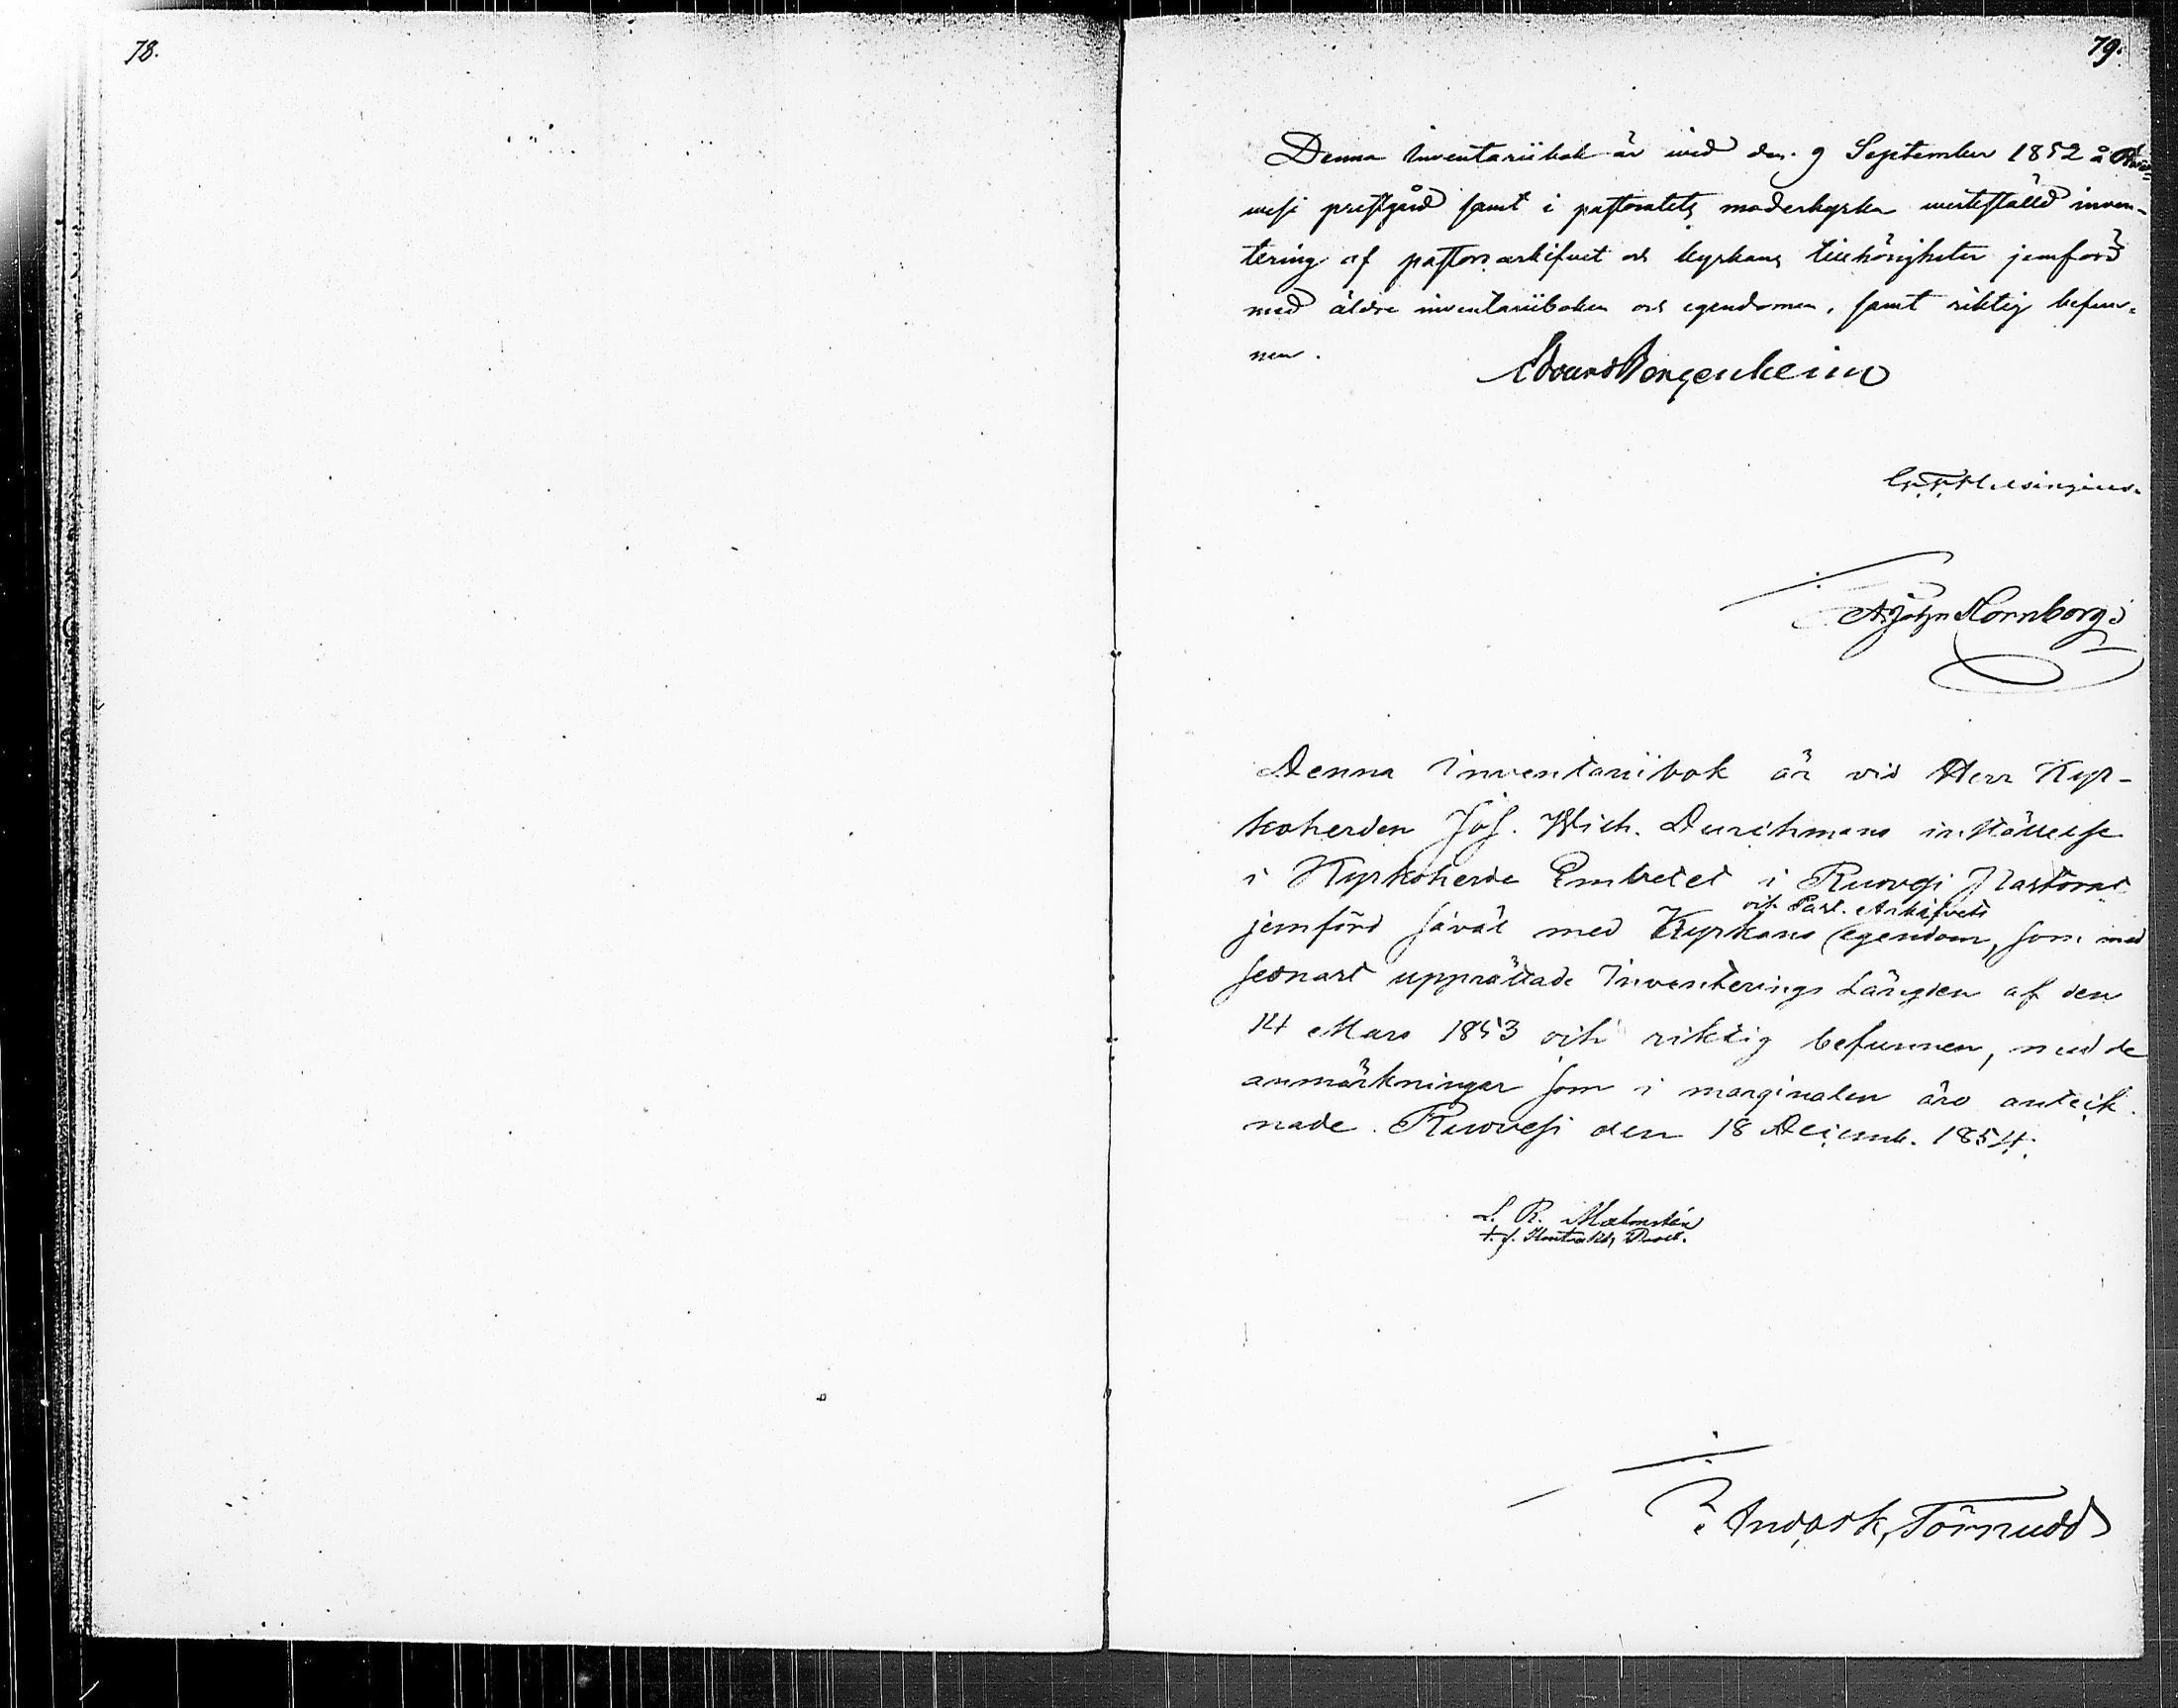 78.
79.
Denna Inventariibok är wid den 9 September 1852 å Ruo-
wesi prestgård samt i pastoratets moderkyrka werkställd inven-
tering af pastorsarkifvet och kyrkans tillhörigheter jemförd
med äldre inventariiboken och egendomen, samt riktig befun-
nen.
Edvard Bergenheim
Helsingius.
A. John Hornborg
Denna Inventariibok är vid Herr Kyr-
koherden Joh. Mich. Durchmans inställelse
i Kyrkoherde Embetet i Ruovesi Pastorat
och Past. Arkifvets
jemförd såväl med Kyrkans egendom, som med
sednast upprättade Inventerings Längden af den
14 Mars 1853 och riktig befunnen, med de
anmärkningar som i marginalen äro anteck-
nade. Ruovesi den 18 Decemb. 1854.
L. R. Malmstén
t. f. Kontrakts Prost.
Törnudd